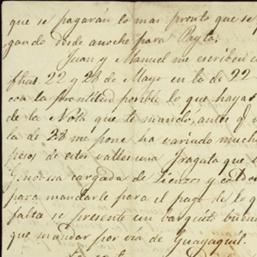 que se pagarán lo mas pronto que se p
gando desde anoche para Payta.
Juan y Manuel me escriben c
fhas 22 y 28 de Mayo en la de 22
con la prontitud posible lo que hayas
de la Nota que te mando, antes q
la de 28 me pone ha variado mucho
pesos de estos valles una Fragata que
cargada de Lienzos y
para mandarle para el pago de lo q
falta se presente un barquito buen
que mandar por via de Guayaquil.